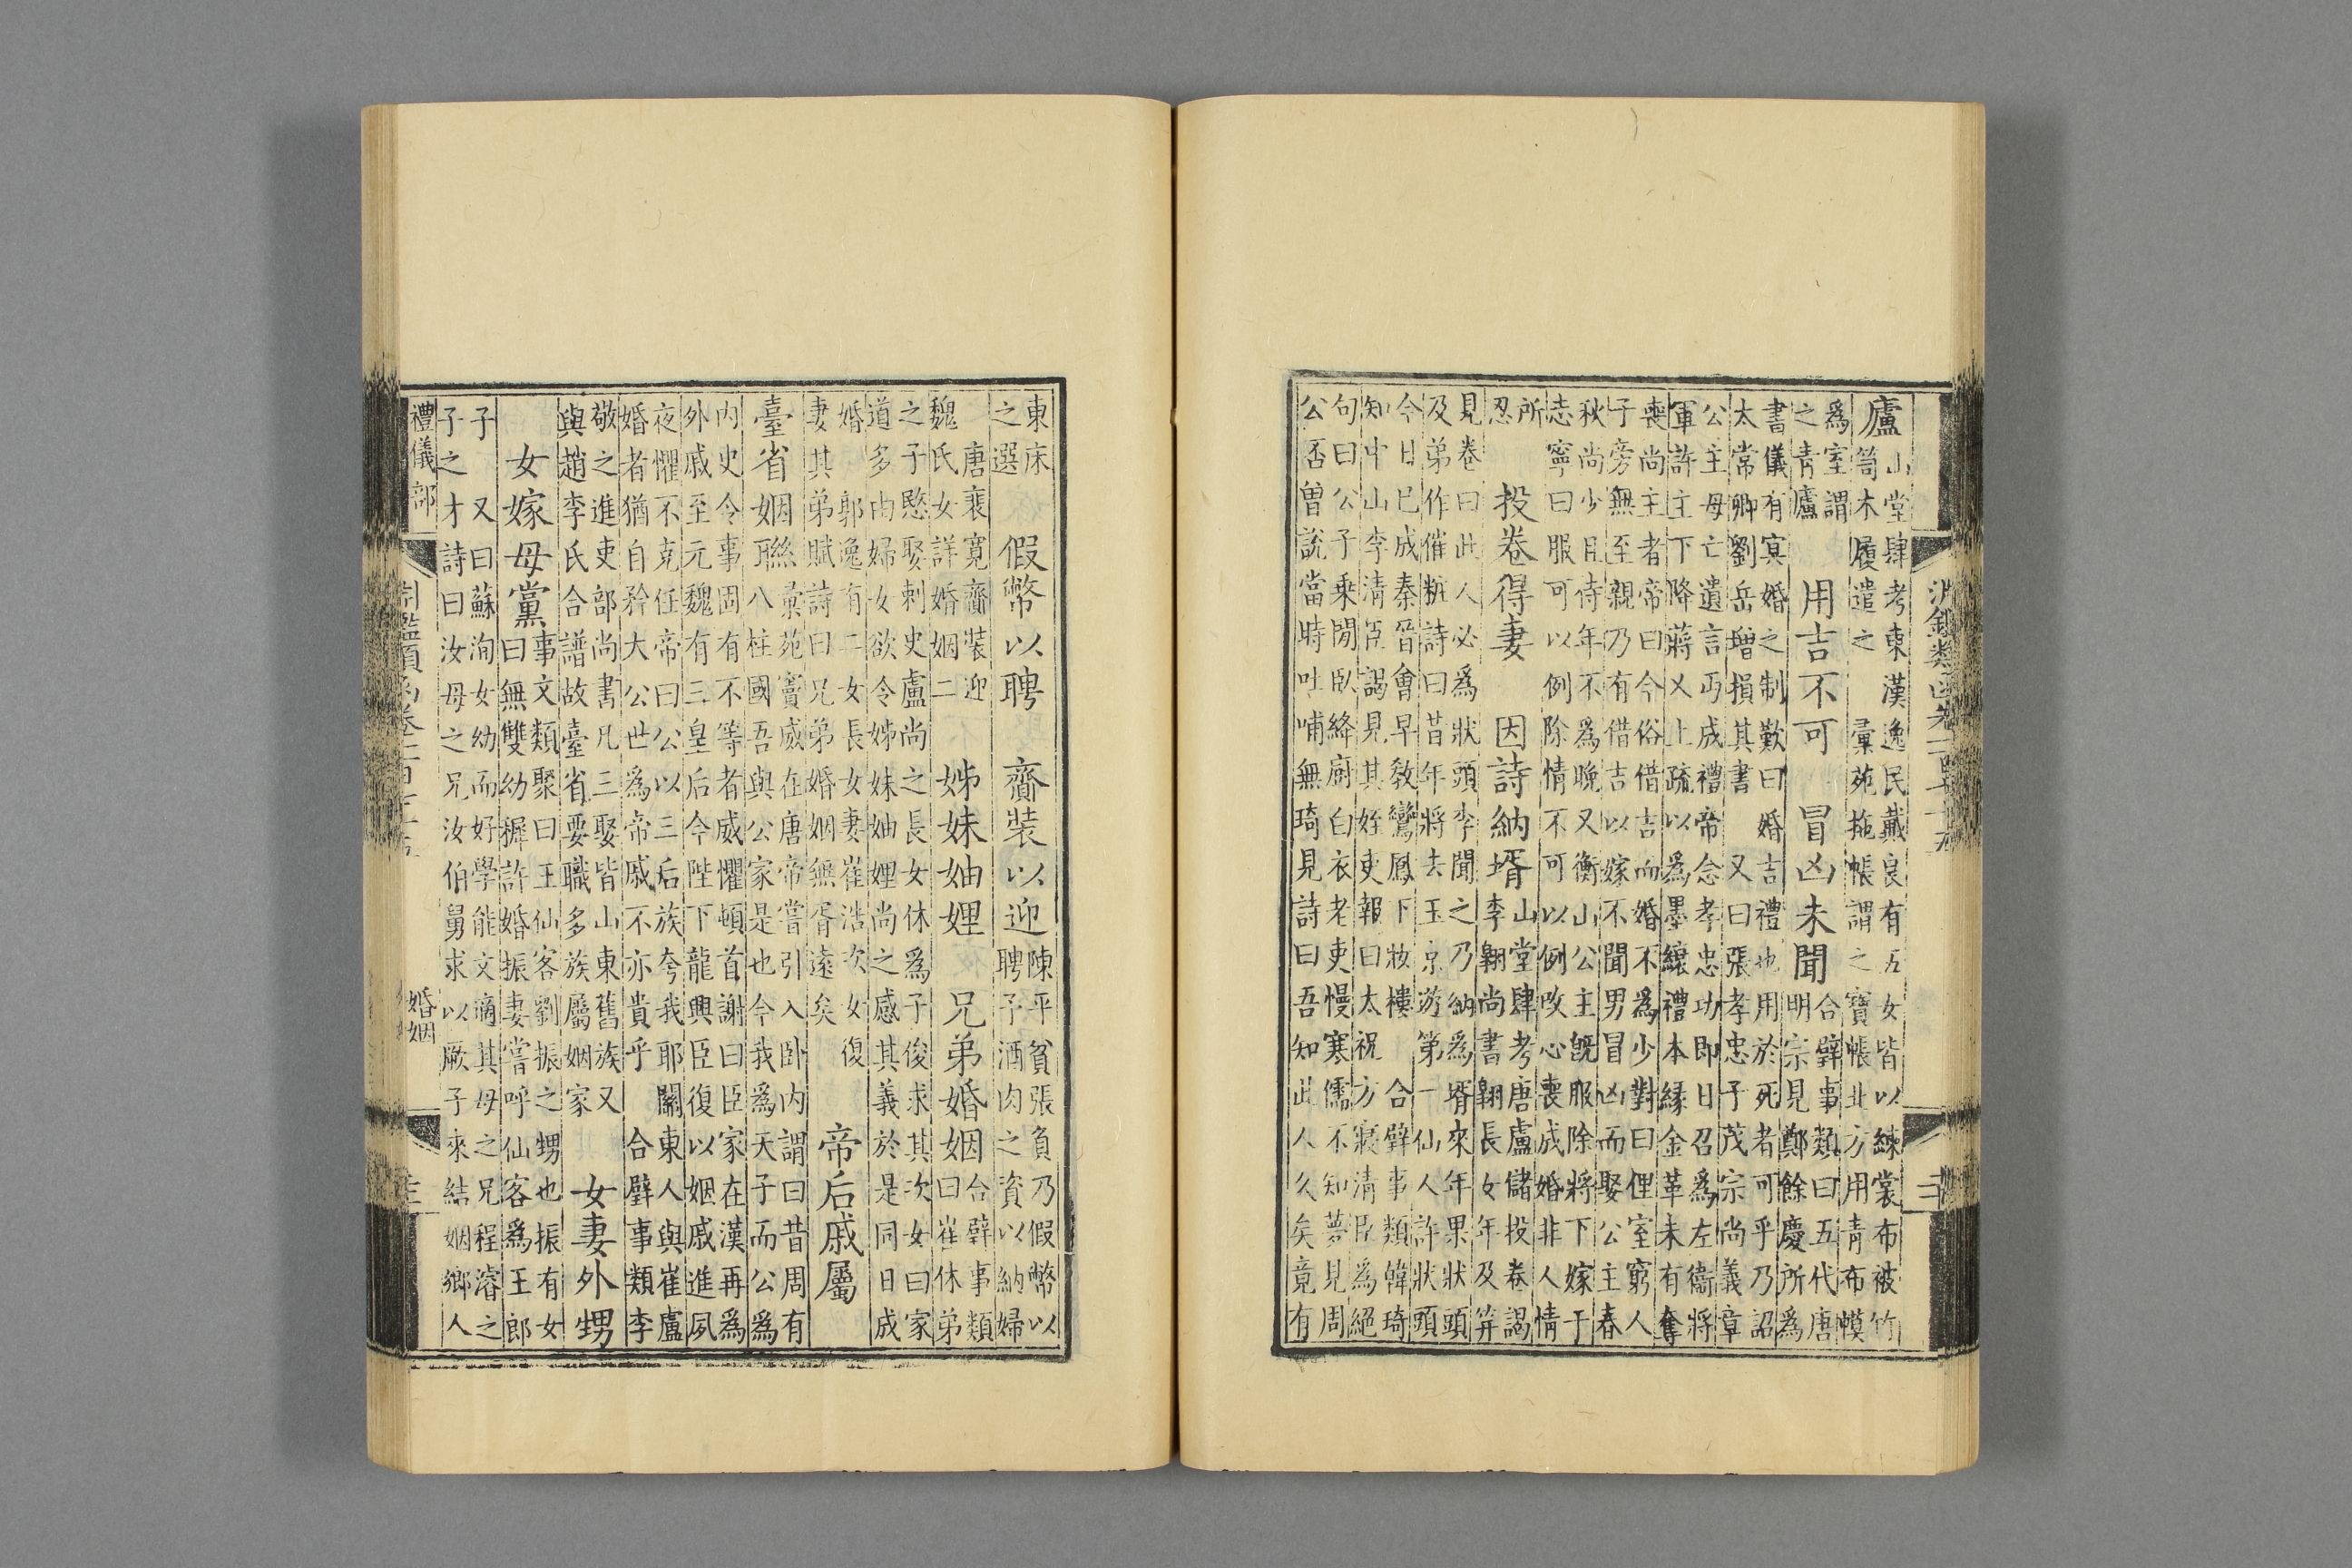 廬
山堂肆考東漢逸民戴良有五女皆以練裳布被竹
笥木屨遣之　彙苑拖帳謂之寶帳北方用青布幔
為室謂
之青廬
用吉不可　冒凶未聞
合璧事類曰五代唐
明宗見鄭餘慶所為
書儀有㝠婚之制歎曰婚吉禮也用於死者可乎乃詔
太常卿劉岳增損其書　又曰張孝忠子茂宗尚義章
公主母亡遺言丐成禮帝念孝忠功即日召為左衞將
軍許主下降蔣乂上疏以為墨縗禮本縁金革未有奪
喪尚主者帝曰今俗借吉而婚不為少對曰俚室窮人
子旁無至親乃有借吉以嫁不聞男冒凶而娶公主春
秋尚少且侍年不為晚又衡山公主旣服除將下嫁于
志寧曰服可以例除情不可以例改心喪成婚非人情
所
忍
投卷得妻　因詩納壻
山堂肆考唐盧儲投卷謁
李翺尚書翺長女年及筓
見卷曰此人必為狀頭李聞之乃納為壻來年果狀頭
及弟作催粧詩曰昔年將去玉京游第一仙人許狀頭
今日已成秦晉會早敎鸞鳳下妝樓　合璧事類韓琦
知中山李清臣謁見其姪吏報曰太祝方寢清臣為絕
句曰公子乗閒臥絳廚白衣老吏慢寒儒不知夢見周
公否曽說當時吐哺無琦見詩曰吾知此人久矣竟有
東床
之選
假幣以聘　齎裝以迎
陳平貧張負乃假幣以
聘予酒肉之資以納婦
唐裴寛齎裝迎
魏氏女詳婚姻二
姊妹妯娌　兄弟婚姻
合璧事類
曰崔休弟
之子愍娶刺史盧尚之長女休為子俊求其次女曰家
道多由婦女欲令姊妹妯娌尚之感其義於是同日成
婚　郭逸有二女長女妻崔浩次女復
妻其弟賦詩曰兄弟婚姻無胥遠矣
帝后戚屬
臺省姻聯
彙苑竇威在唐帝嘗引入卧内謂曰昔周有
八柱國吾與公家是也今我為天子而公為
内史令事固有不等者威懼頓首謝曰臣家在漢再為
外戚至元魏有三皇后今陛下龍興臣復以姻戚進夙
夜懼不克任帝曰公以三后族夸我耶關東人與崔盧
婚者猶自矜大公世為帝戚不亦貴乎　合璧事類李
敬之進吏部尚書凡三娶皆山東舊族又
與趙李氏合譜故臺省要職多族屬姻家
女妻外甥
女嫁母黨
事文類聚曰王仙客劉振之甥也振有女
曰無雙幼穉許婚振妻嘗呼仙客為王郎
子　又曰蘇洵女幼而好學能文適其母之兄程濬之
子之才詩曰汝母之兄汝伯舅求以厥子來結姻鄉人
禮儀部
婚姻